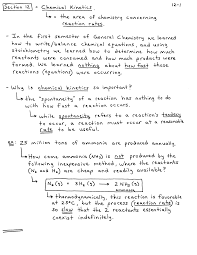 Section 12 - Chemical Kinetics
12-1
↳ = the area of chemistry concerning
reaction rates.
- In the first semester of General Chemistry we learned
how to write/balance chemical equations, and using
stoichiometry we learned how to determine how much
reactants were consumed and how much products were
formed. We learned nothing about how fast these
reactions (equations) were occurring.
- Why is chemical kinetics so important?
↳ the "spontaneity" of a reaction has nothing to do
with how fast a reaction occurs.
↳ while spontaneity refers to a reaction's tendency
to occur, a reaction must occur at a reasonable
rate to be useful.
million tons of ammonia are produced annually.
↳ How come ammonia (NH3) is not produced by the
following inexpensive method, where the reactants
(N2 and H2) are cheap and readily available?
N2 (g) + 3H2 (g) → 2 NH3 (g)
↳ thermodynamically, this reaction is favorable
at 25°C, but the process (reaction rate) is
so slow that the 2 reactants essentially
coexist indefinitely.